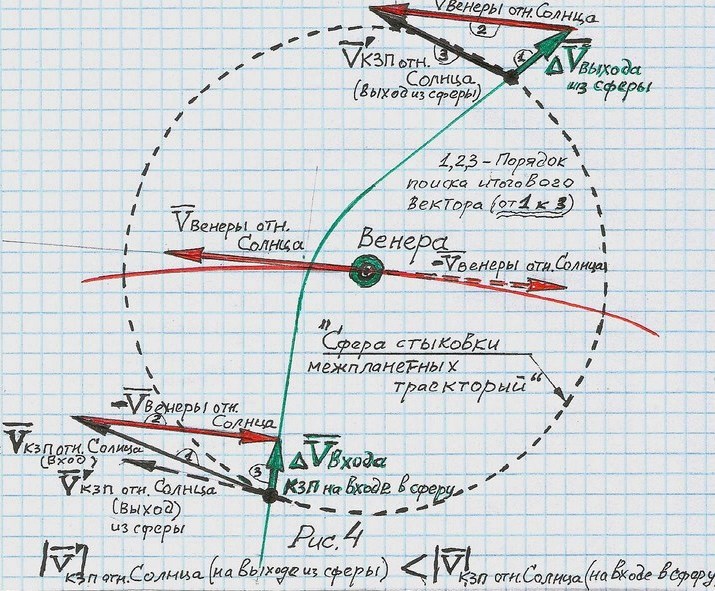 V̅Венеры отн. Солнца
2
V̅' КЗП отн.
Солнца
(Выход из сферы)
3
1
ΔV̅выхода
из сферы
1,2,3 – Порядок
поиска итогового
вектора (от 1 к 3)
V̅Венеры отн.
Солнца
Венера
-V̅Венеры отн. Солнца
"Сфера стыковки
межпланетных
траекторий"
-V̅Венеры отн.
Солнца
2
V̅КЗП отн. Солнца
(Вход)
1
3
ΔV̅Входа
КЗП на входе в сферу
V̅' КЗП отн. Солнца
(Выход)
из сферы
Рис. 4
|V̅'| КЗП отн. Солнца (на выходе из сферы) < |V̅| КЗП отн. Солнца (на входе в сферу)